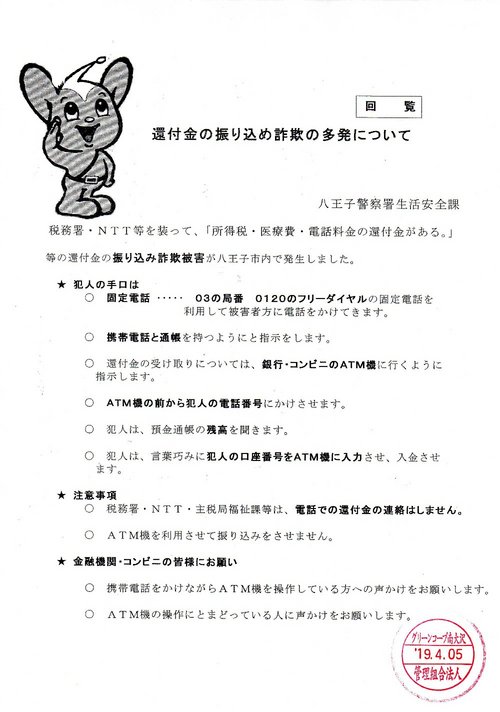 回 覧
還付金の振り込め詐欺の多発について
八王子警察署生活安全課
税務署・NTT等を装って、「所得税・医療費・電話料金の還付金がある。」
等の還付金の振り込み詐欺被害が八王子市内で発生しました。
★ 犯人の手口は
○ 固定電話 ‥‥‥ 03の局番 0120のフリーダイヤルの固定電話を
利用して被害者方に電話をかけてきます。
○ 携帯電話と通帳を持つようにと指示をします。
○ 還付金の受け取りについては、銀行・コンビニのATM機に行くように
指示します。
○ ATM機の前から犯人の電話番号にかけさせます。
○ 犯人は、預金通帳の残高を聞きます。
○ 犯人は、言葉巧みに犯人の口座番号をATM機に入力させ、入金させ
ます。
★ 注意事項
○ 税務署・NTT・主税局福祉課等は、電話での還付金の連絡はしません。
○ ATM機を利用させて振り込みをさせません。
★ 金融機関・コンビニの皆様にお願い
○ 携帯電話をかけながらATM機を操作している方への声かけをお願いします。
○ ATM機の操作にとまどっている人に声かけをお願いします。
グリーンコープ南大沢
'19.4.05
管理組合法人